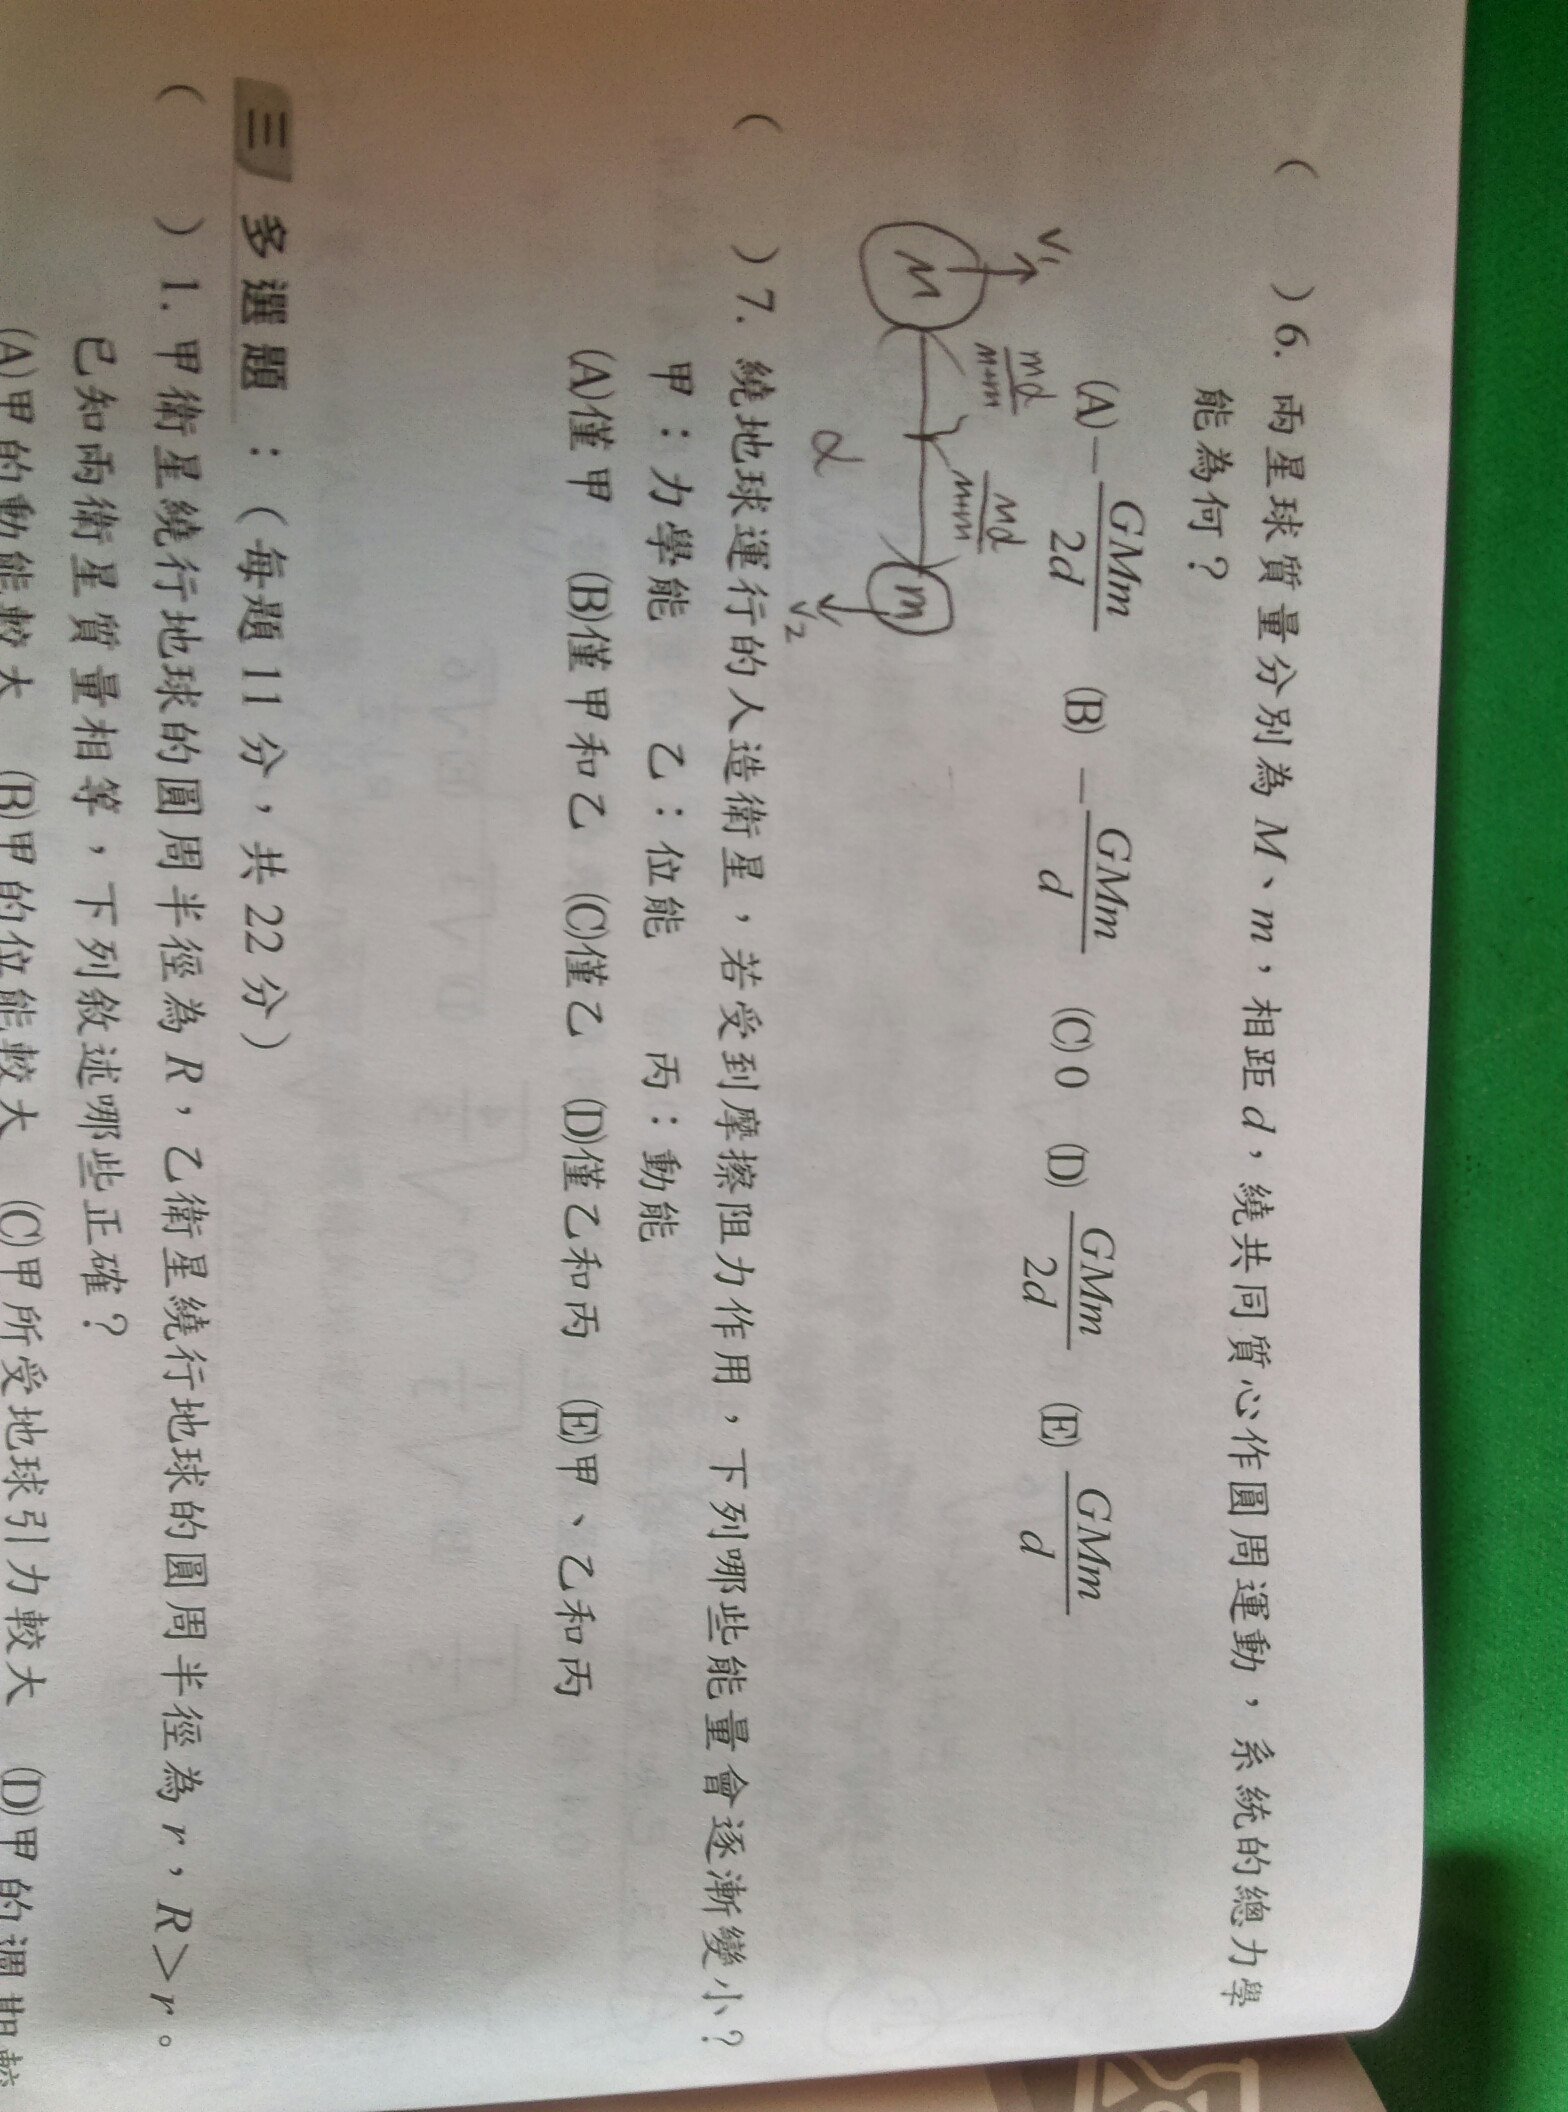 ( ) 6. 兩星球質量分別為 M、m，相距 d，繞共同質心作圓周運動，系統的總力學
能為何？
(A) −GMm/2d (B) −GMm/d (C) 0 (D) GMm/2d (E) GMm/d
V₁
md/M+m Md/M+m
M m
d V₂
( ) 7. 繞地球運行的人造衛星，若受到摩擦阻力作用，下列哪些能量會逐漸變小？
甲：力學能 乙：位能 丙：動能
(A)僅甲 (B)僅甲和乙 (C)僅乙 (D)僅乙和丙 (E)甲、乙和丙
三 多選題：（每題 11 分，共 22 分）
( ) 1. 甲衛星繞行地球的圓周半徑為 R，乙衛星繞行地球的圓周半徑為 r，R＞r。
已知兩衛星質量相等，下列敘述哪些正確？
(A)甲的動能較大 (B)甲的位能較大 (C)甲所受地球引力較大 (D)甲的週期較